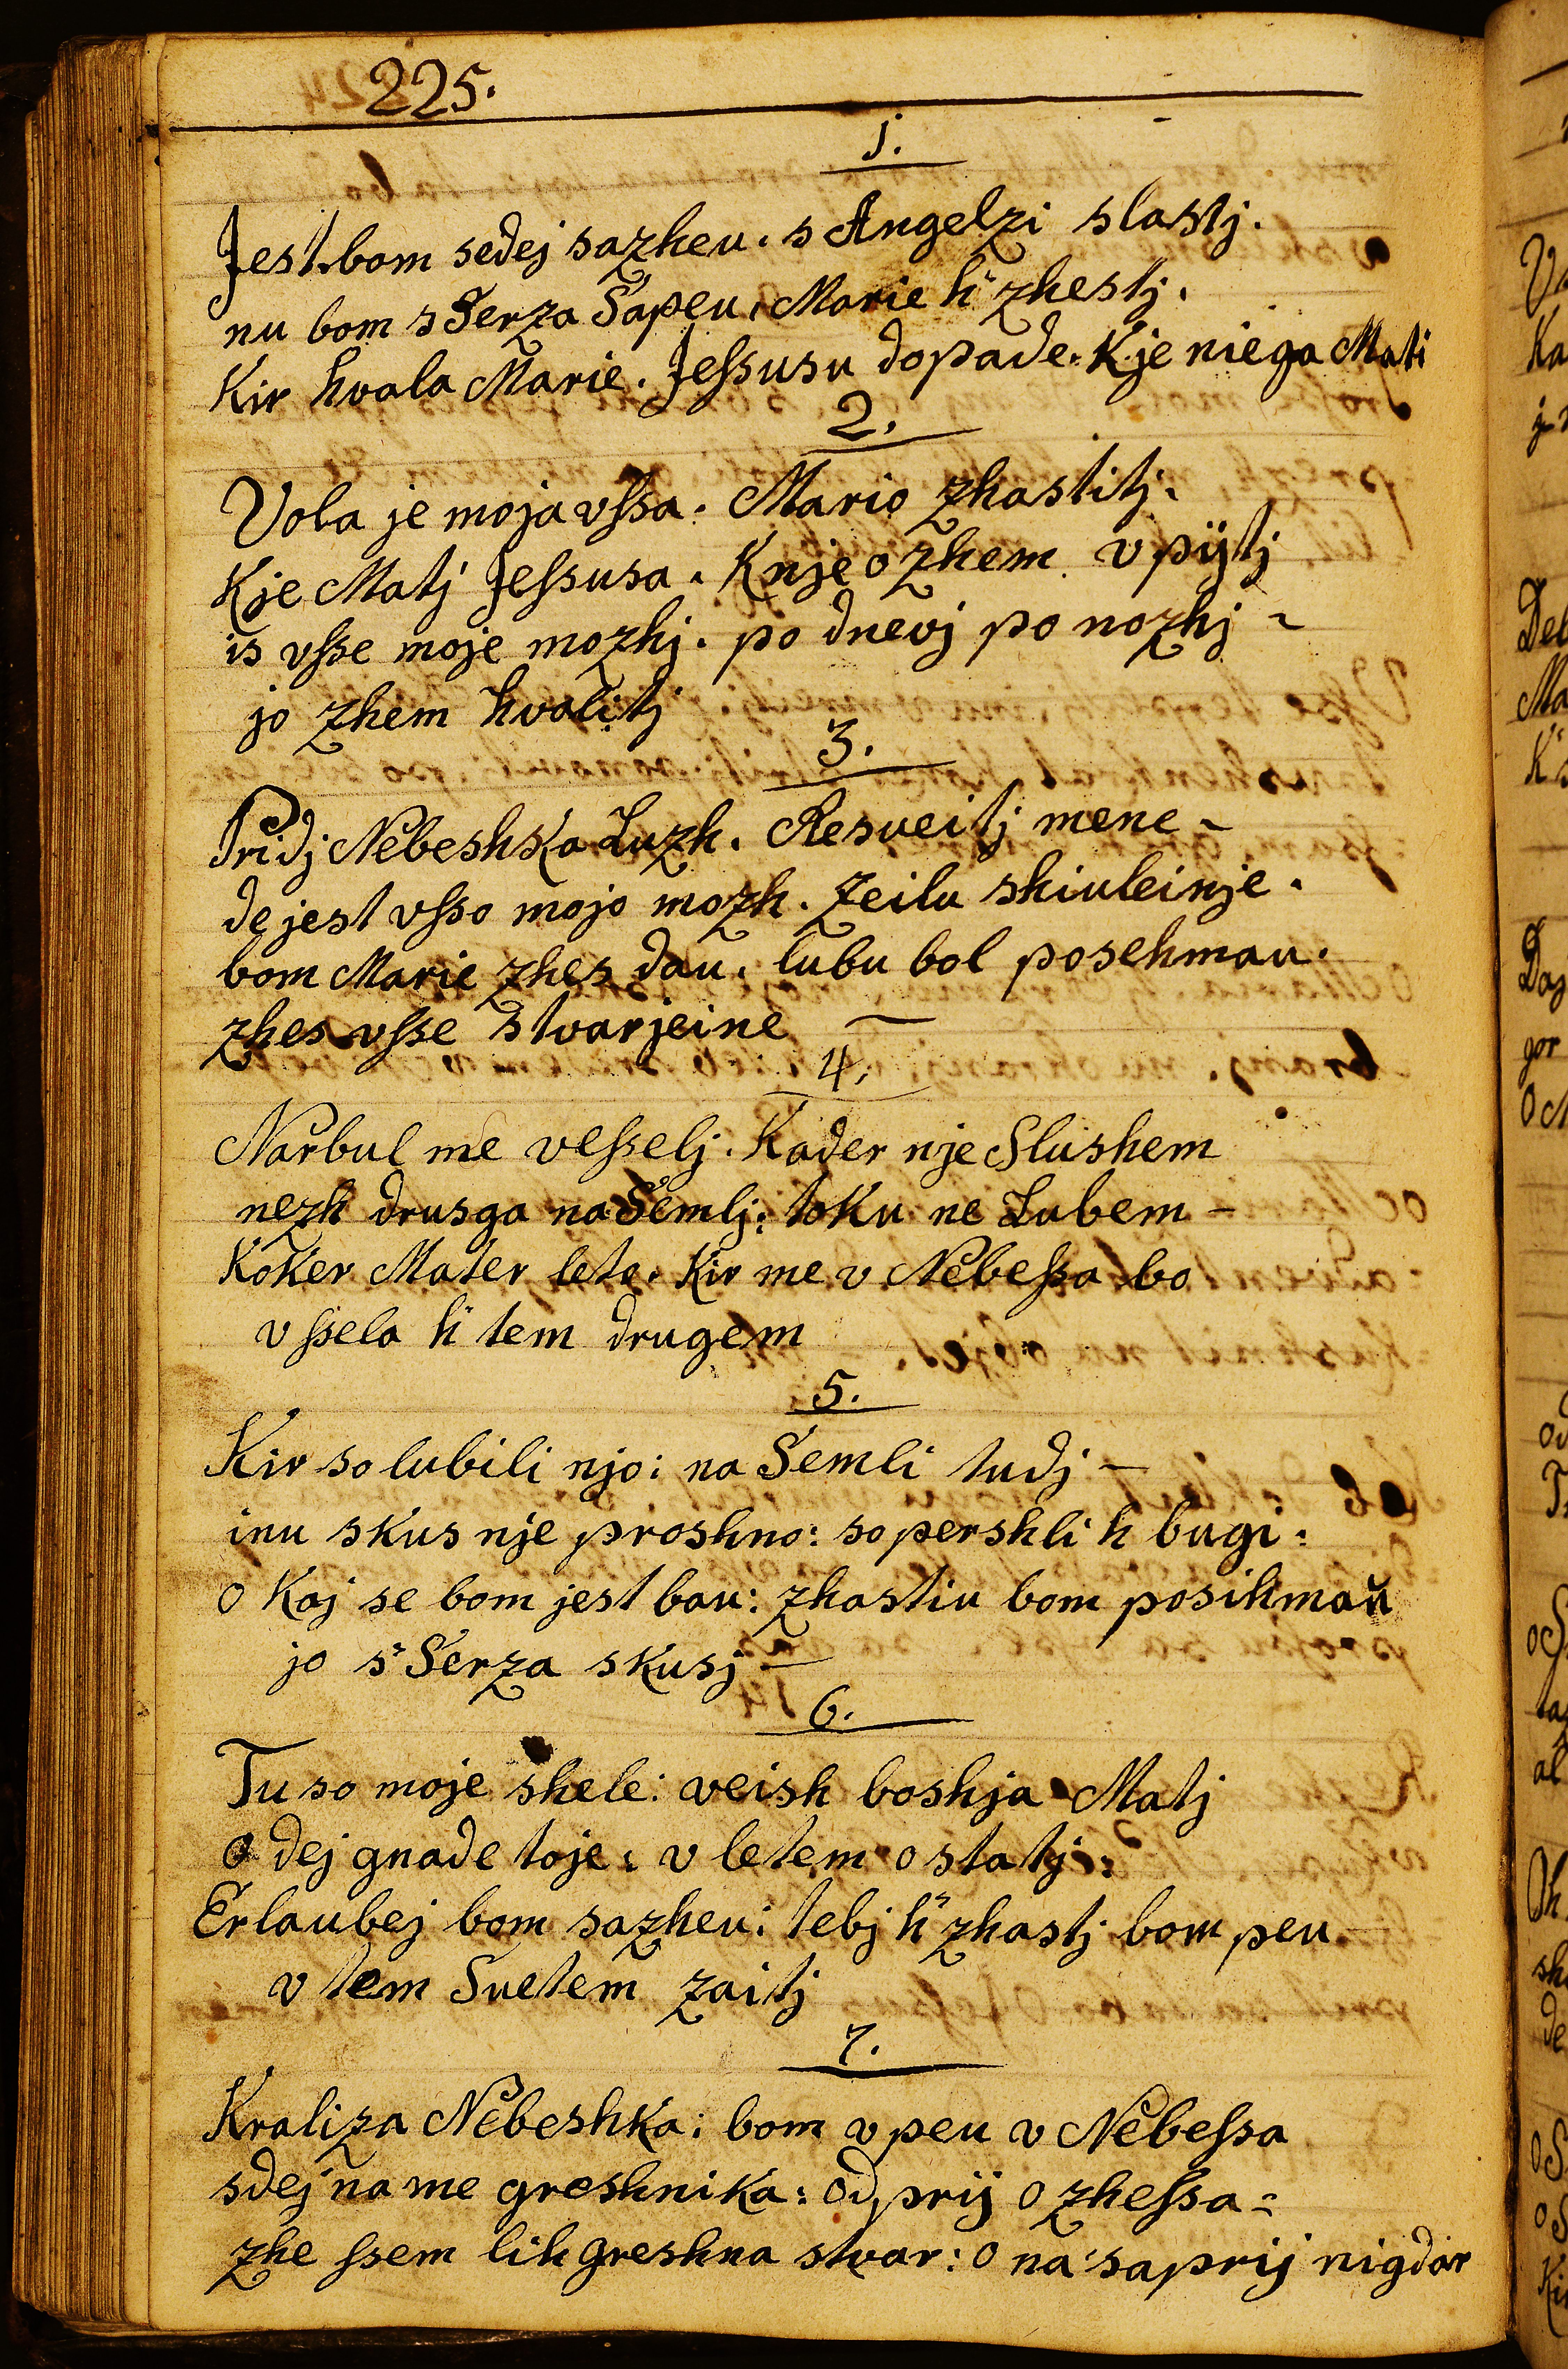 225.
1.
Jest bom sedej sazheu. s Angelzi slastj.
nu bom s Serza Sapeu. Marie h' zhestj.
Kir hvala Marie. Jeſsusu dopade. Kje niega Mati
2.
Vola je moja vſsa. Mario zhastitj.
Kje Matj Jeſsusa. Knje o zhem vpijtj
is vſse moje mozhj. po dnevj po nozhj -
jo zhem hvalitj
3.
Pridj Nebeshka Luzh. Resveitj mene -
de jest vſso mojo mozh. Zeilu shiuleinje.
bom Marie zhes dau. lubu bol posehmau.
zhes vſse stvarjeine -
4.
Narbul me veſselj. Kader nje Slushem
nezh drusga na Semlj: toku ne Lubem -
Koker Mater leto. Kir me v Nebeſsa bo
vſsela h' tem drugem
5.
Kir so lubili njo: na Semli tudj -
inu skus nje proshno: so pershli h bugi:
o Kaj se bom jest bau: zhastiu bom posihmaŭ
jo s' Serza skusj -
6.
Tu so moje shele: veish boshja Matj
o dej gnade toje: v letem ostatj:
Erlaubej bom sazheu: tebj h' zhastj bom peu
v tem Suetem zaitj
7.
Kraliza Nebeshka: bom vpeu v Nebeſsa
sdej na me greshnika: odprij ozheſsa =
zhe ſsem lih greshna stvar: o na saprij nigdar